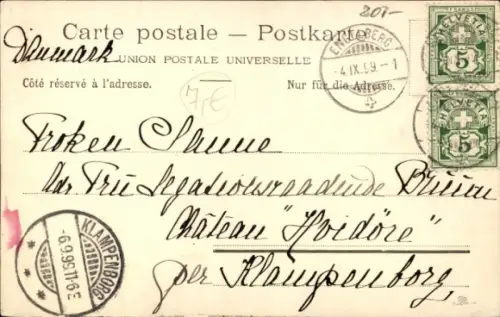 201-
Carte postale — Postkarte
Danmark
UNION POSTALE UNIVERSELLE
Côté réservé à l'adresse.
Nur für die Adresse.
7,€
HELVETIA
5
HELVETIA
5
ENGELBERG
-4.IX.
Frøken Sanne
Adr Fru Legationsraadinde Bruun
Château "Hvidöre"
per Klampenborg,
KLAMPENBORG
6.9.95 11-9 E